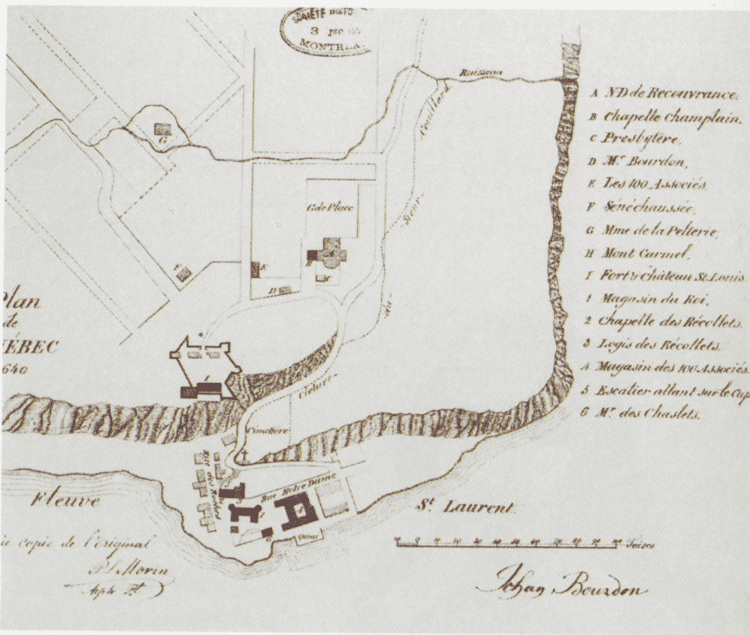 MONTREAL
Ruisseau
Couillard
Sieur
du
Gde Place
G
F
E
D
Plan
de
QUÉBEC
1640
Clôture
Cimetière
Rue Notre Dame
Quai
Fleuve
St. Laurent.
copie de l'original
P. L. Morin
Toises
Jehan Bourdon
A ND de Recouvrance.
B Chapelle Champlain.
C Presbytère.
D Mr. Bourdon,
E Les 100 Associés.
F Sénéchaussée,
G Mme de la Pelterie,
H Mont Carmel,
I Fort & Château St. Louis
1 Magasin du Roi,
2 Chapelle des Récollets.
3 Logis des Récollets.
4 Magasin des 100 Associés
5 Escalier allant sur le Cap
6 Mr. des Chaslets.